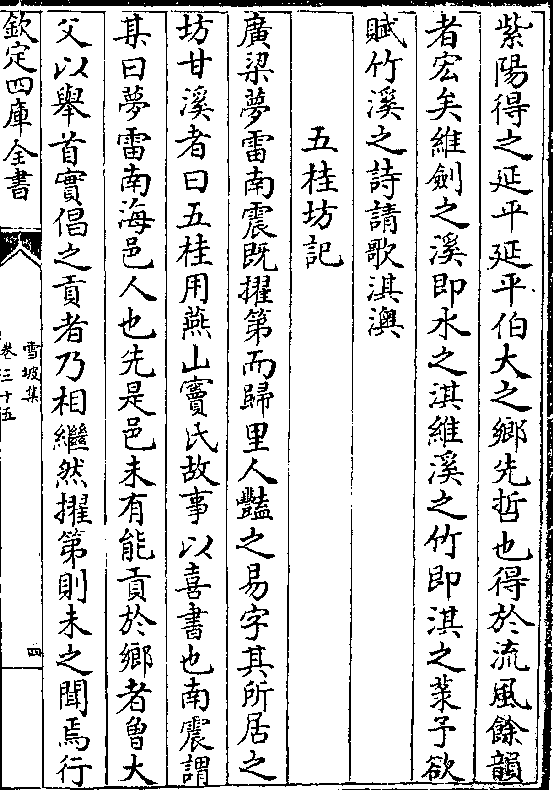 紫陽得之延平延平伯大之鄉先哲也得於流風餘韻
者宏矣維劍之溪即水之淇維溪之竹即淇之菉予欲
賦竹溪之詩請歌淇澳
五桂坊記
廣梁夢雷南震既擢第而歸里人豔之易字其所居之
坊甘溪者曰五桂用燕山竇氏故事以喜書也南震謂
某曰夢雷南海邑人也先是邑未有能貢於鄉者曾大
父以舉首實倡之貢者乃相繼然擢第則未之聞焉行
欽定四庫全書
雪坡集
卷三十五
四